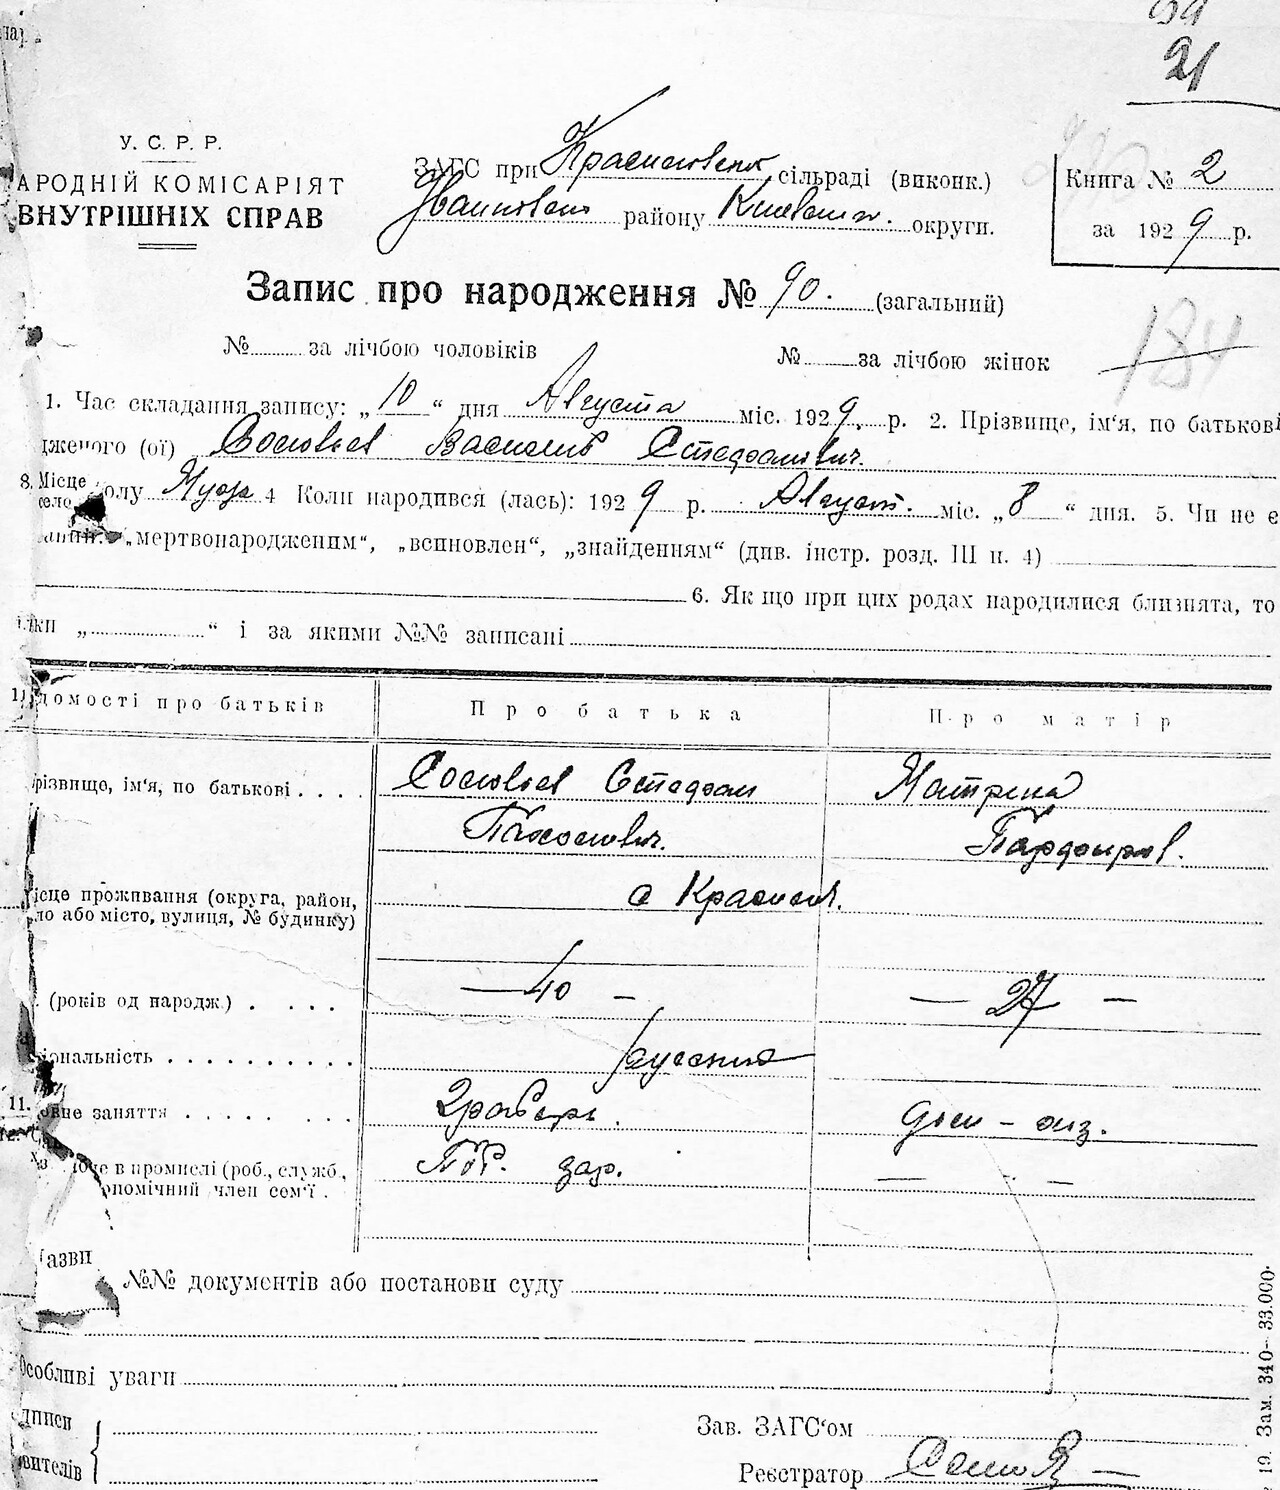 91
У. С. Р. Р.
АРОДНІЙ КОМІСАРІЯТ
ВНУТРІШНІХ СПРАВ
ЗАГС при сільраді (виконк.)
району округи.
Книга № 2
за 1929 р.
Запис про народження № 90. (загальний)
184
№ за лічбою чоловіків № за лічбою жінок
1. Час складання запису: „10“ дня Августа міс. 1929 р. 2. Прізвище, ім‘я, по батькові
дженого (ої) Соловьев Василь Стефанович.
Місце
село
полу Муж 4 Коли народився (лась): 1929 р. Август. міс. „8“ дня. 5. Чи не є
„мертвонародженим“, „всиновлен“, „знайденням“ (див. інстр. розд. III п. 4)
6. Як що при цих родах народилися близнята, то
ільки „ “ і за якими №№ записані
домості про батьків Про батька Про матір
різвище, ім‘я, по батькові . . . . Соловьев Стефан Матрена
ісце проживання (округа, район, с Красил.
ло або місто, вулиця, № будинку)
. (років од народж.) . . . . — 40 — — 27 —
іональність . . . . . . . . . . русские
11. овне заняття . . . . . . . грабарь.
в промислі (роб., служб.,
опомічний член сем‘ї . — - —
Назви
№№ документів або постанови суду
Особливі уваги
дписи
вителів
Зав. ЗАГС‘ом
Реєстратор
19. Зам. 340—33.000.